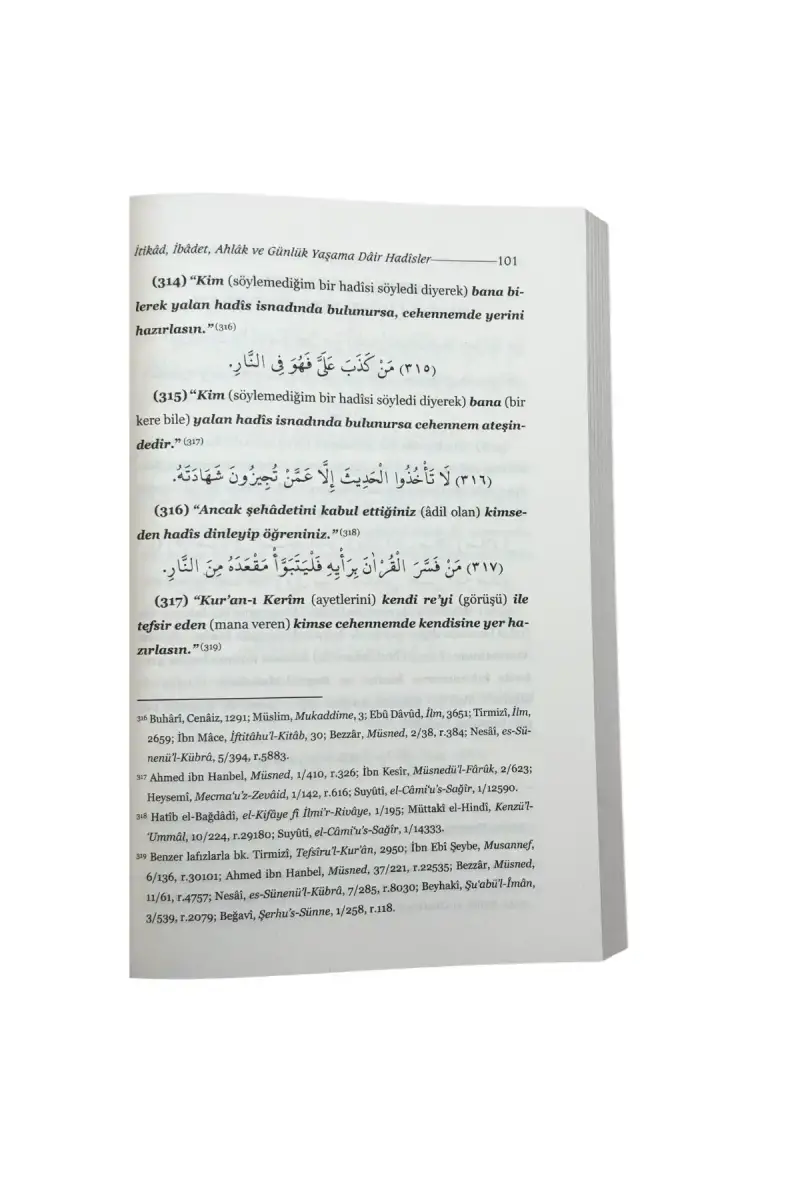 İtikâd, İbâdet, Ahlâk ve Günlük Yaşama Dâir Hadîsler 101
(314) “Kim (söylemediğim bir hadîsi söyledi diyerek) bana bi-
lerek yalan hadîs isnadında bulunursa, cehennemde yerini
hazırlasın.”(316)
(٣١٥) مَنْ كَذَبَ عَلَيَّ فَهُوَ فِي النَّارِ.
(315) “Kim (söylemediğim bir hadîsi söyledi diyerek) bana (bir
kere bile) yalan hadîs isnadında bulunursa cehennem ateşin-
dedir.”(317)
(٣١٦) لَا تَأْخُذُوا الْحَدِيثَ إِلَّا عَمَّنْ تُجِيزُونَ شَهَادَتَهُ.
(316) “Ancak şehâdetini kabul ettiğiniz (âdil olan) kimse-
den hadîs dinleyip öğreniniz.”(318)
(٣١٧) مَنْ فَسَّرَ الْقُرْاٰنَ بِرَأْيِهِ فَلْيَتَبَوَّأْ مَقْعَدَهُ مِنَ النَّارِ.
(317) “Kur’an-ı Kerîm (ayetlerini) kendi re’yi (görüşü) ile
tefsir eden (mana veren) kimse cehennemde kendisine yer ha-
zırlasın.”(319)
316 Buhârî, Cenâiz, 1291; Müslim, Mukaddime, 3; Ebû Dâvûd, İlm, 3651; Tirmizî, İlm,
2659; İbn Mâce, İftitâhu’l-Kitâb, 30; Bezzâr, Müsned, 2/38, r.384; Nesâî, es-Sü-
nenü’l-Kübrâ, 5/394, r.5883.
317 Ahmed ibn Hanbel, Müsned, 1/410, r.326; İbn Kesîr, Müsnedü’l-Fârûk, 2/623;
Heysemî, Mecma‘u’z-Zevâid, 1/142, r.616; Suyûti, el-Câmi‘u’s-Sağîr, 1/12590.
318 Hatîb el-Bağdâdî, el-Kifâye fî İlmi’r-Rivâye, 1/195; Müttakî el-Hindî, Kenzü’l-
‘Ummâl, 10/224, r.29180; Suyûti, el-Câmi‘u’s-Sağîr, 1/14333.
319 Benzer lafızlarla bk. Tirmizî, Tefsîru’l-Kur’ân, 2950; İbn Ebî Şeybe, Musannef,
6/136, r.30101; Ahmed ibn Hanbel, Müsned, 37/221, r.22535; Bezzâr, Müsned,
11/61, r.4757; Nesâî, es-Sünenü’l-Kübrâ, 7/285, r.8030; Beyhakî, Şu‘abü’l-Îmân,
3/539, r.2079; Beğavî, Şerhu’s-Sünne, 1/258, r.118.